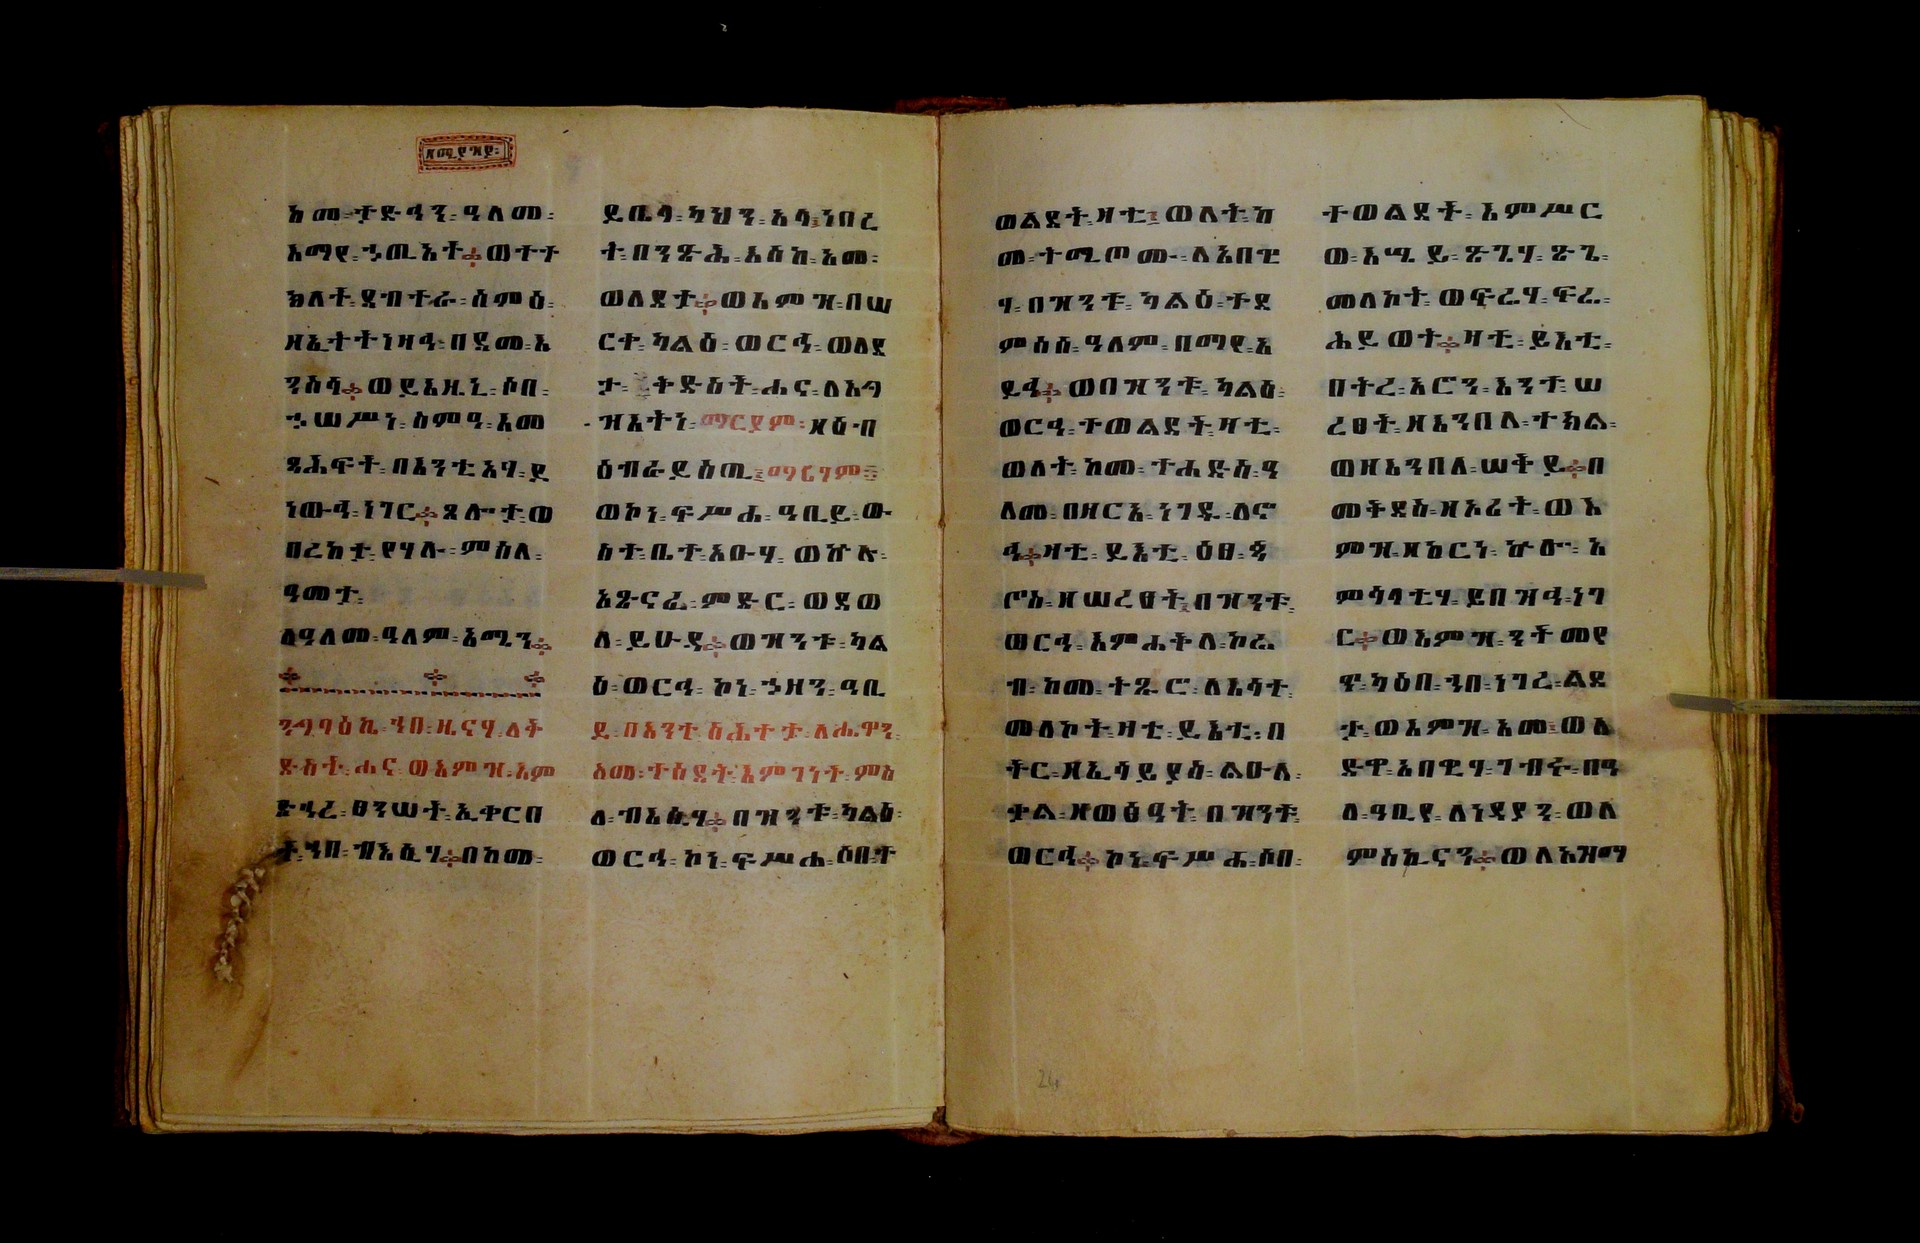 ዘሚያዝያ፡
ከመ፡ ታድኅን፡ ዓለመ፡
እማየ፡ ኀጢአት፨ ወተተ
ክለት፡ ደብተራ፡ ስምዕ፡
ዘኢተትነዛኅ፡ በደመ፡ እ
ንስሳ፨ ወይእዜኒ፡ ሶበ፡
ኀሠሥነ፡ ስምዓ፡ እመ
ጻሕፍት፡ በእንቲአሃ፡ ደ
ነውኅ፡ ነገር፨ ጸሎታ፡ ወ
በረከታ፡ የሃሉ፡ ምስለ፡
ዓመታ፡
ለዓለመ፡ ዓለም፡ አሜን፨
ንግባዕኬ፡ ኀበ፡ ዜናሃ፡ ለት
ድስት፡ ሐና፡ ወእምዝ፡ እም
ድኅረ፡ ፀንሠት፡ ኢቀርበ
ት፡ ኀበ፡ ብእሲሃ፨ በከመ፡
ይቤላ፡ ካህን፡ አላ፡ ነበረ
ት፡ በንጽሕ፡ እስከ፡ አመ፡
ወለደታ፨ ወእምዝ፡ በሠ
ርተ፡ ካልዕ፡ ወርኅ፡ ወለደ
ታ፡ ቅድስት፡ ሐና፡ ለእግ
ዝእትነ፡ ማርያም፡ ዘዕብ
ዕብራይስጢ፡ ማሪሃም፡
ወኮነ፡ ፍሥሐ፡ ዓቢይ፡ ው
ስተ፡ ቤተ፡ አቡሃ፡ ወኵሉ፡
አጽናፈ፡ ምድር፡ ወደወ
ለ፡ ይሁዳ፨ ወዝንቱ፡ ካል
ዕ፡ ወርኅ፡ ኮነ፡ ኀዘን፡ ዓቢ
ይ፡ በእንተ፡ ስሕተታ፡ ለሔዋን፡
አመ፡ ተሰደት፡ እምገነት፡ ምስ
ለ፡ ብእሲሃ፨ በዝንቱ፡ ካልዕ፡
ወርኅ፡ ኮነ፡ ፍሥሐ፡ ሶበ፡ ተ
ወልደት፡ ዛቲ፡ ወለት፡ ከ
መ፡ ተሚጦ መ፡ ለአበዊ
ሃ፡ በዝንቱ፡ ካልዕ፡ ተደ
ምሰሰ፡ ዓለም፡ በማየ፡ አ
ይኅ፨ ወበዝንቱ፡ ካልዕ፡
ወርኅ፡ ተወልደት፡ ዛቲ፡
ወለት፡ ከመ፡ ተሐድስ፡ ዓ
ለመ፡ በዘርአ፡ ነገዱ፡ ለኖ
ኅ፨ ዛቲ፡ ይእቲ፡ ዕፀ፡ ጳ
ጦስ፡ ዘሠረፀት፡ በዝንቱ፡
ወርኅ፡ እምሐቅለ፡ ኮሬ
ብ፡ ከመ፡ ተጹር፡ ለእሳተ፡
መለኮት፡ ዛቲ፡ ይእቲ፡ በ
ትር፡ ዘኢሳይያስ፡ ልዑለ፡
ቃል፡ ዘወፅዓት፡ በዝንቱ፡
ወርኅ፨ ኮነ፡ ፍሥሐ፡ ሶበ፡
ተወልደት፡ እምሥር
ወ፡ እሤይ፡ ጽጌሃ፡ ጽጌ፡
መለኮት፡ ወፍሬሃ፡ ፍሬ፡
ሕይወት፨ ዛቲ፡ ይእቲ፡
በትረ፡ አሮን፡ እንተ፡ ሠ
ረፀት፡ ዘእንበለ፡ ተክል፡
ወዘእንበለ፡ ሠቅይ፨ በ
መቅደስ፡ ዘኦሪት፡ ወእ
ምዝ፡ ዘከርነ፡ ኵሎ፡ አ
ምሳላቲሃ፡ ይበዝኅ፡ ነገ
ር፨ ወእምዝ፡ ንትመየ
ዋ፡ ካዕበ፡ ኀበ፡ ነገረ፡ ልደ
ታ፡ ወእምዝ፡ አመ፡ ወለ
ድዋ፡ አበዊሃ፡ ገብሩ፡ በዓ
ለ፡ ዓቢየ፡ ለነዳያን፡ ወለ
ምስኪናን፨ ወለአዝማ